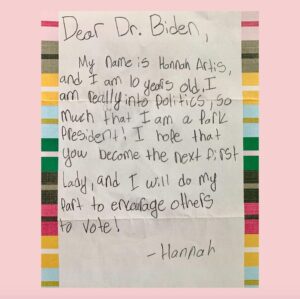 Dear Dr. Biden,
My name is Hannah Artis,
and I am 10 years old. I
am really into politics, so
much that I am a Park
President! I hope that
you become the next first
Lady, and I will do my
Part to encorage others
to vote!
- Hannah